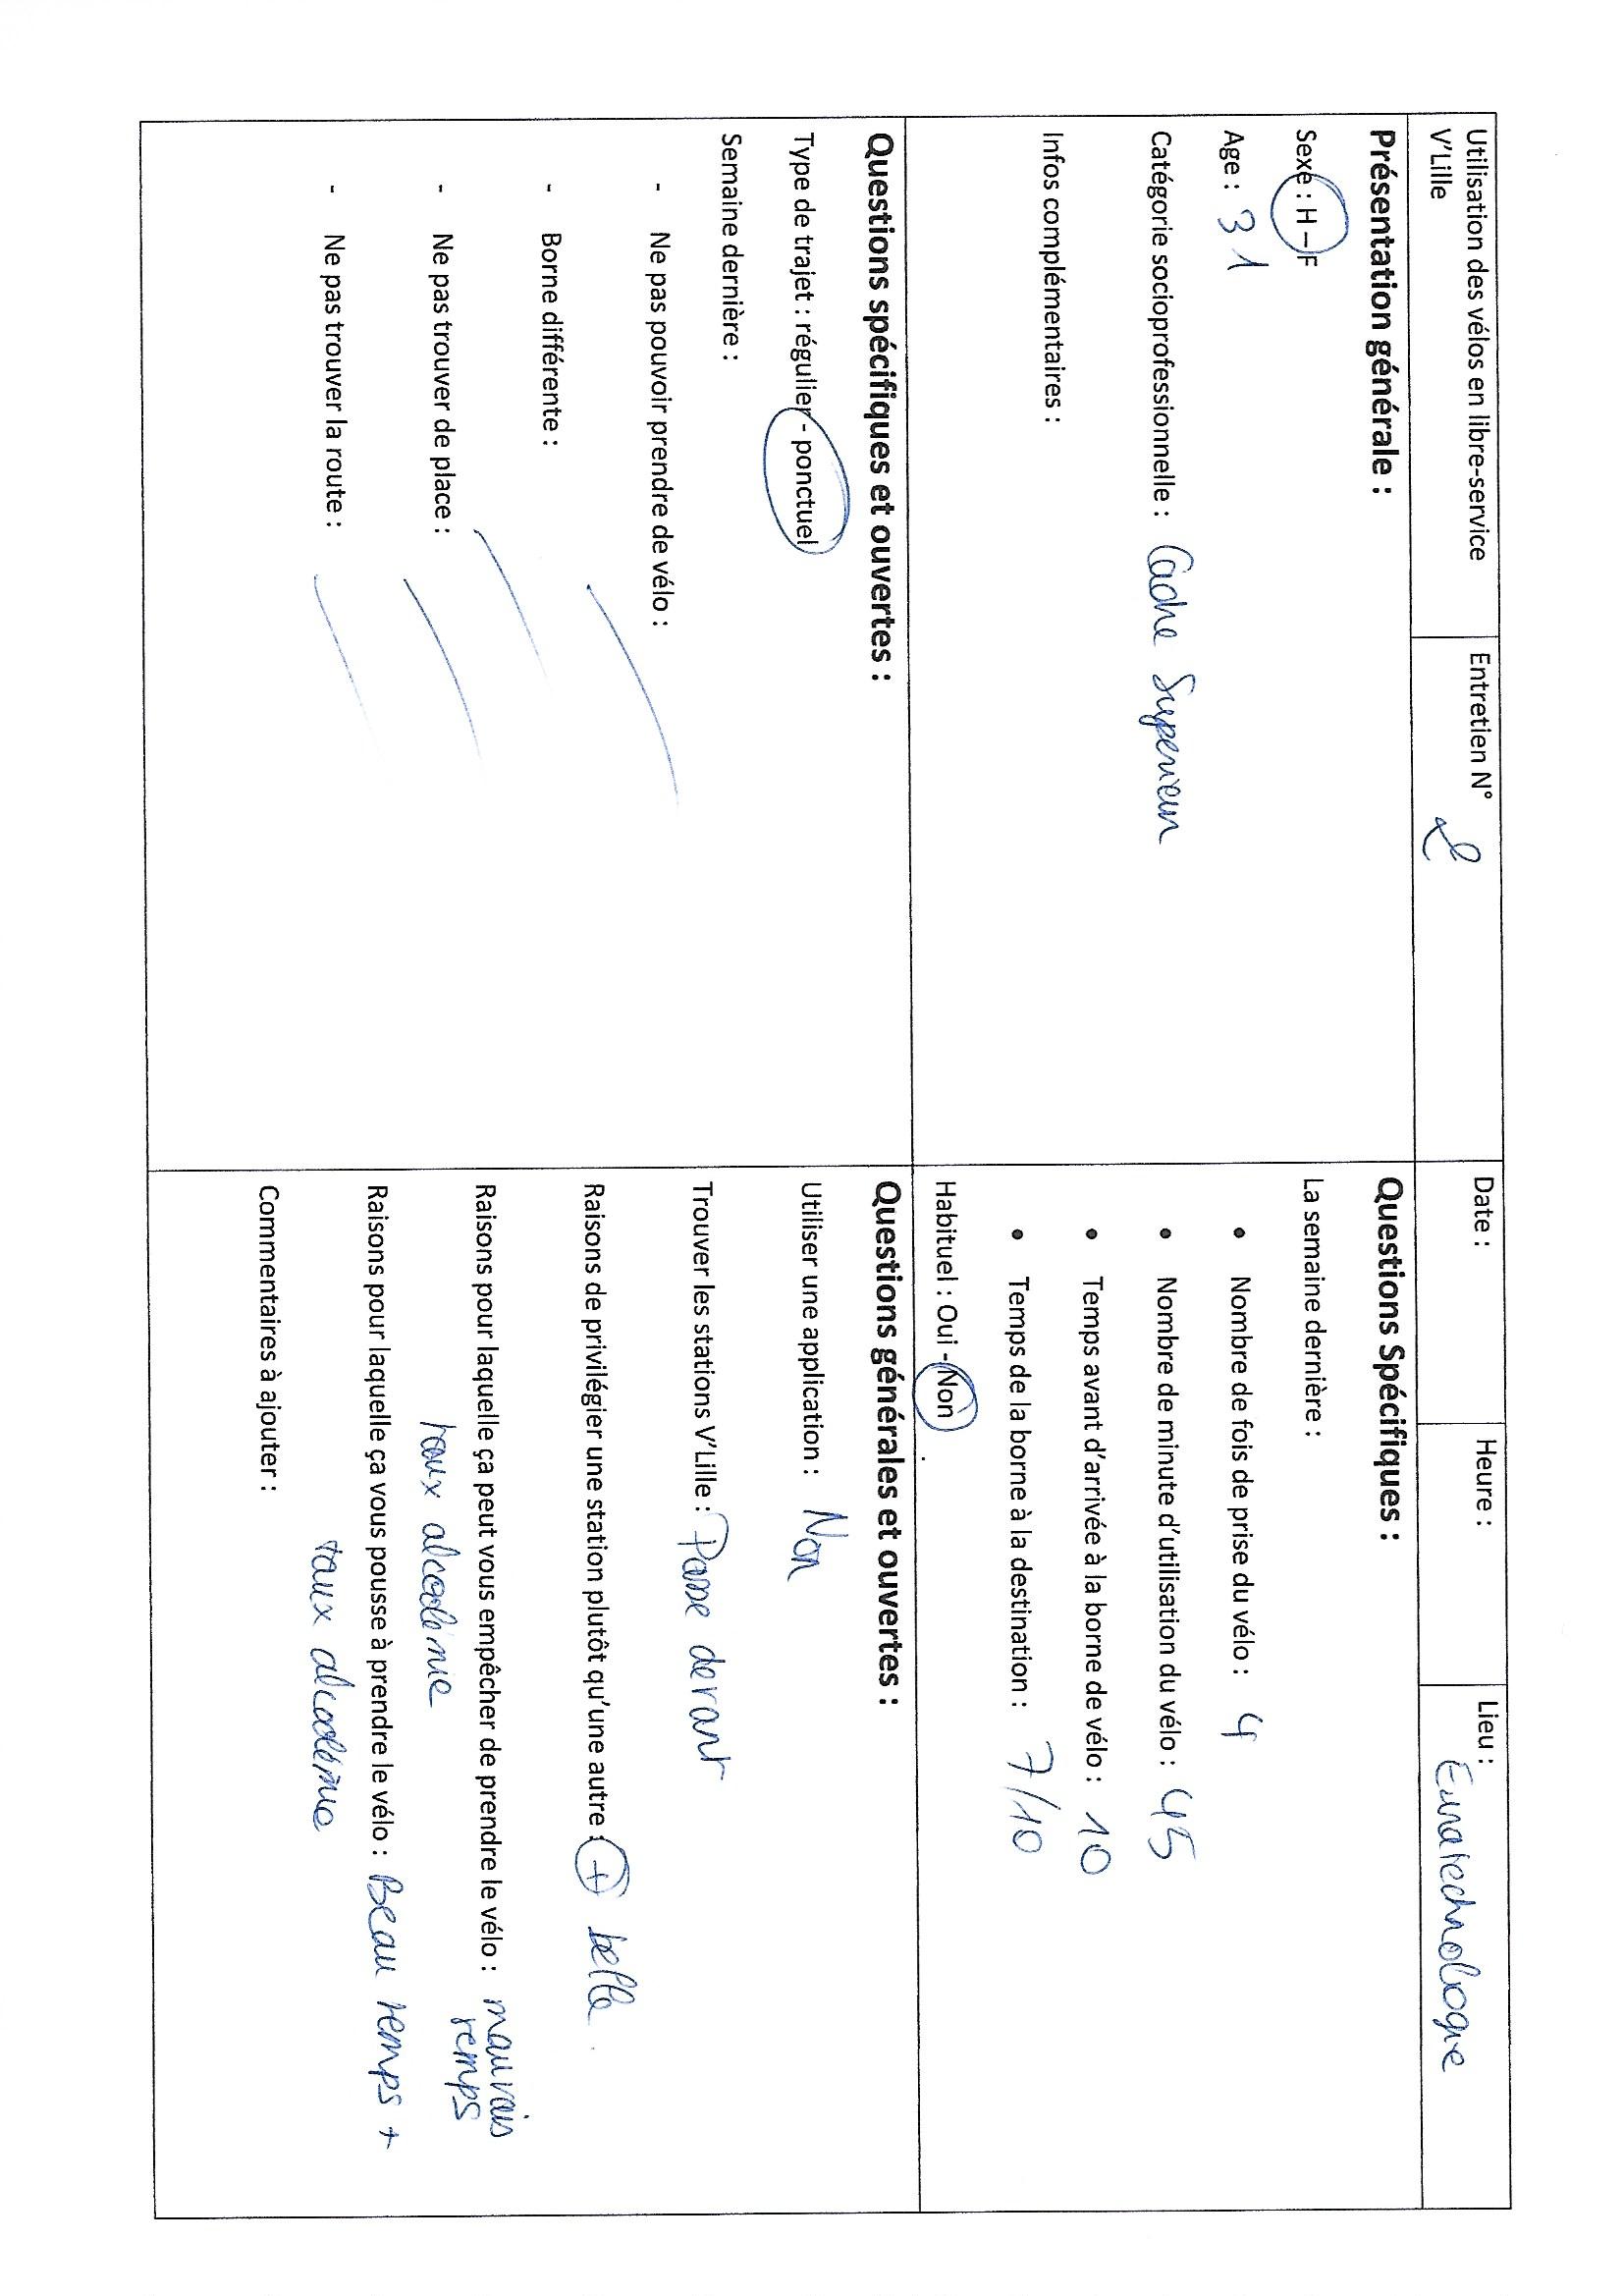 Utilisation des vélos en libre-service
V'Lille
Entretien N° 2
Date :
Heure :
Lieu :
Euratechnologie
Présentation générale :
Sexe : H – F
Age : 31
Catégorie socioprofessionnelle : Cadre Superieur
Infos complémentaires :
Questions Spécifiques :
La semaine dernière :
• Nombre de fois de prise du vélo : 4
• Nombre de minute d'utilisation du vélo : 45
• Temps avant d'arrivée à la borne de vélo : 10
• Temps de la borne à la destination : 7/10
Habituel : Oui - Non
Questions spécifiques et ouvertes :
Type de trajet : régulier - ponctuel
Semaine dernière :
- Ne pas pouvoir prendre de vélo :
- Borne différente :
- Ne pas trouver de place :
- Ne pas trouver la route :
Questions générales et ouvertes :
Utiliser une application : Non
Trouver les stations V'Lille : Passe devant
Raisons de privilégier une station plutôt qu'une autre : + belle
Raisons pour laquelle ça peut vous empêcher de prendre le vélo : mauvais
temps
taux alcoolémie
Raisons pour laquelle ça vous pousse à prendre le vélo : Beau temps +
taux alcoolémie
Commentaires à ajouter :